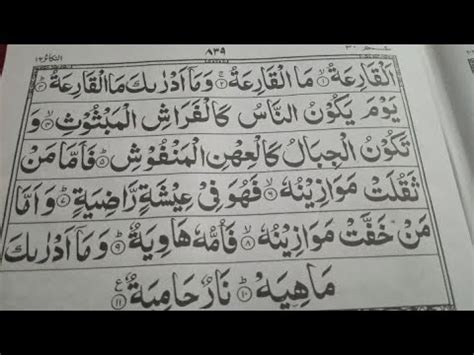 التكاثر ١٠٢ ٨٣٩ عم ٣٠
اَلْقَارِعَةُ ۙ١ مَا الْقَارِعَةُ ۚ٢ وَمَاۤ اَدْرٰىكَ مَا الْقَارِعَةُ ؕ٣
يَوْمَ يَكُوْنُ النَّاسُ كَالْفَرَاشِ الْمَبْثُوْثِ ۙ٤ وَ
تَكُوْنُ الْجِبَالُ كَالْعِهْنِ الْمَنْفُوْشِ ؕ٥ فَاَمَّا مَنْ
ثَقُلَتْ مَوَازِيْنُهٗ ۙ٦ فَهُوَ فِيْ عِيْشَةٍ رَّاضِيَةٍ ؕ٧ وَاَمَّا
مَنْ خَفَّتْ مَوَازِيْنُهٗ ۙ٨ فَاُمُّهٗ هَاوِيَةٌ ؕ٩ وَمَاۤ اَدْرٰىكَ
مَاهِيَهْ ؕ١٠ نَارٌ حَامِيَةٌ ١١ ع